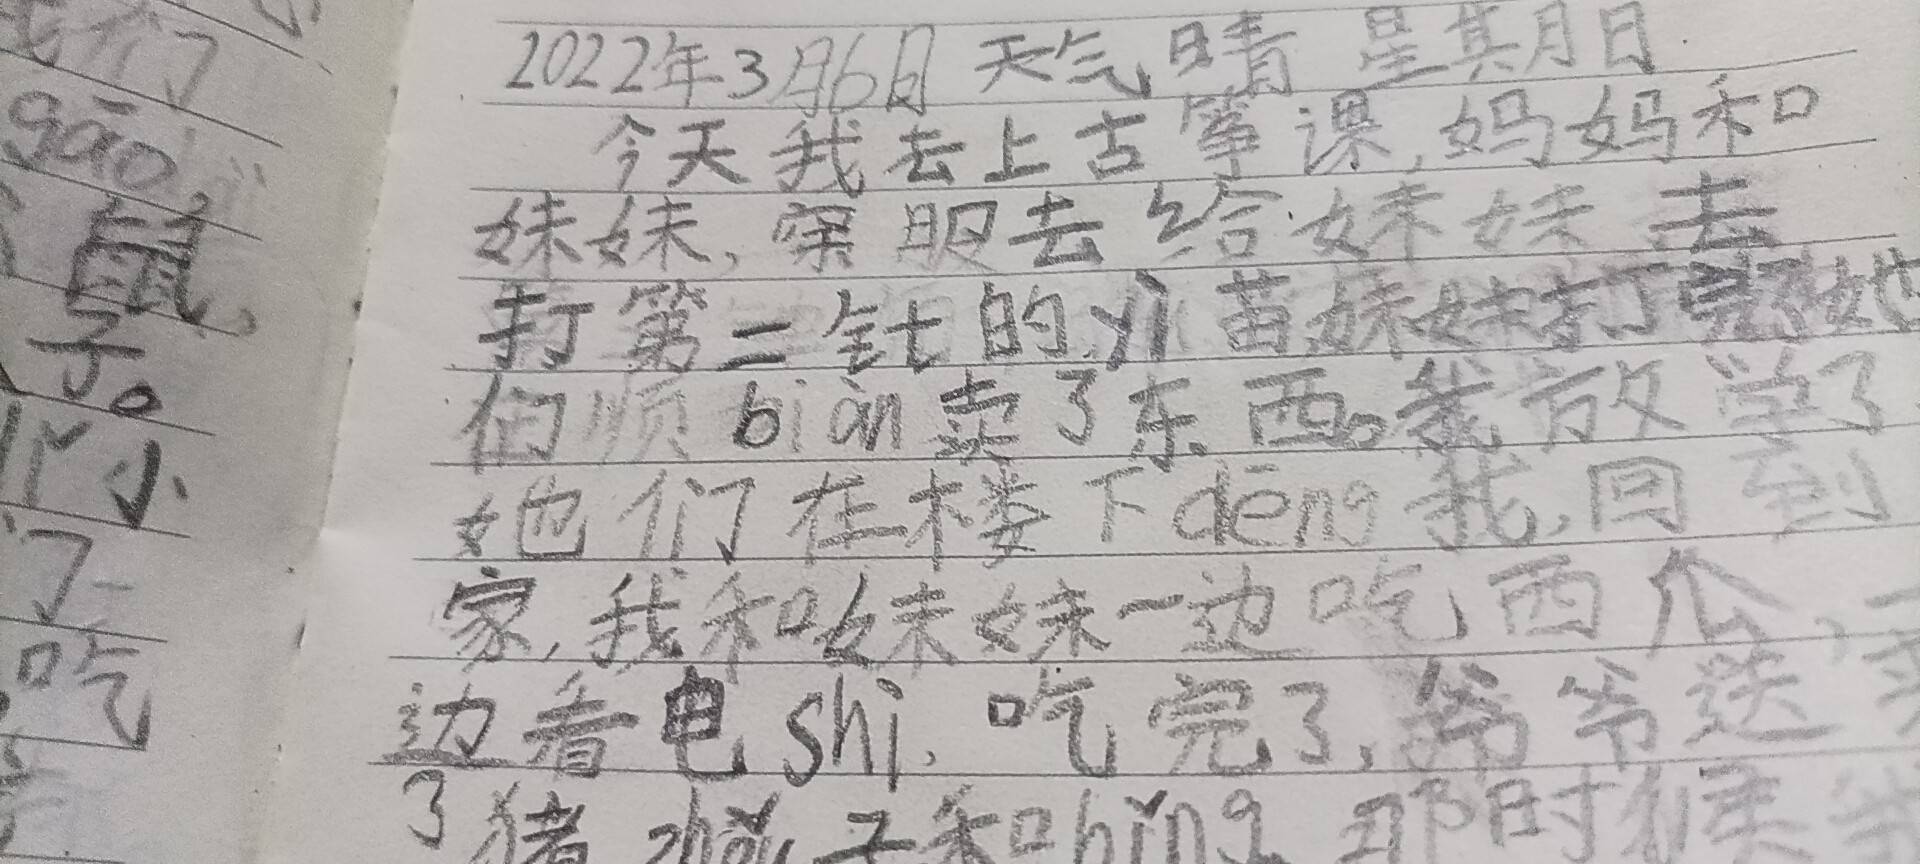 我们了
gāo
鼠
子。
们小
了
吃
2022年3月6日 天气晴 星期日
今天我去上古筝课,妈妈和
妹妹,去给妹妹去
打第二针的yì苗,妹妹打完了她
们顺biàn卖了东西。我放学了
她们在楼下děng我,回到
家,我和妹妹一边吃西瓜,一
边看电shì.吃完了,爷爷送来
了猪子和bǐng.那时候我